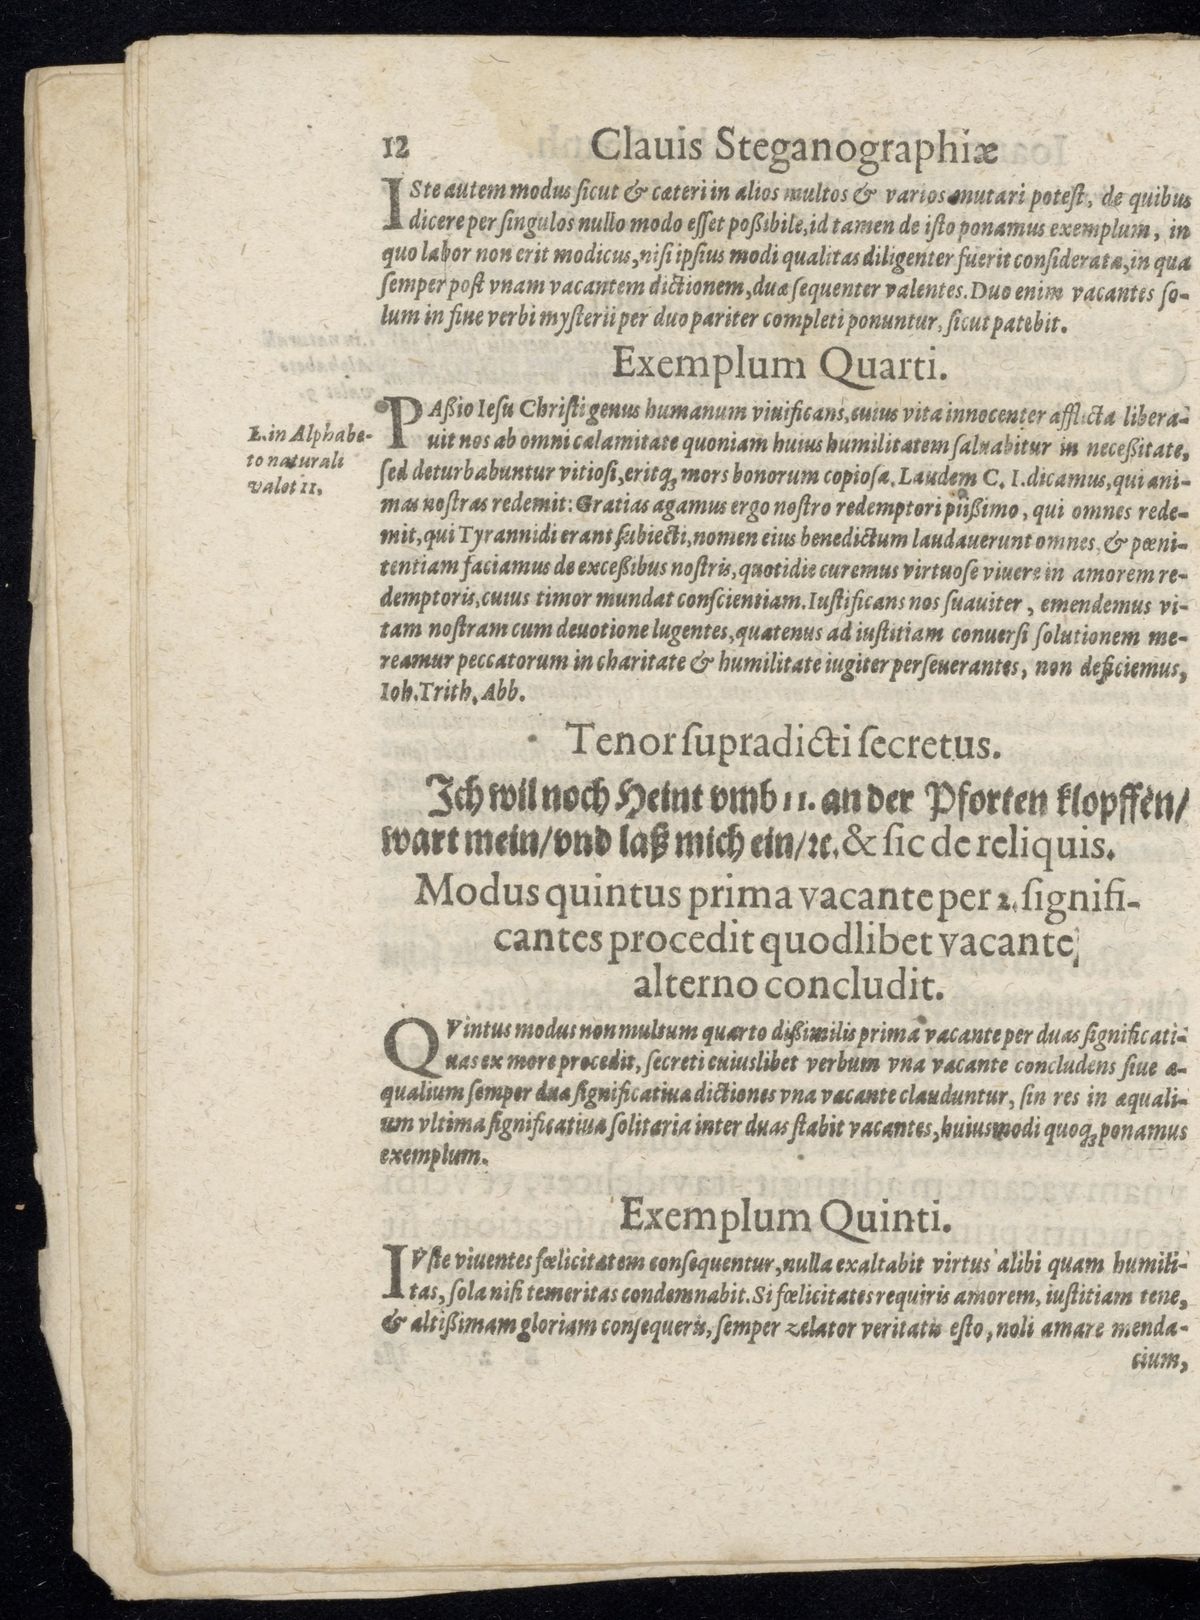 12 Clauis Steganographiæ
ISte autem modus ſicut & cæteri in alios multos & varios mutari poteſt, de quibus
dicere per ſingulos nullo modo eſſet poßibile, id tamen de iſto ponamus exemplum, in
quo labor non erit modicus, niſi ipſius modi qualitas diligenter fuerit conſiderata, in qua
ſemper poſt vnam vacantem dictionem, duæ ſequenter valentes. Duo enim vacantes ſo-
lum in fine verbi myſterii per duo pariter completi ponuntur, ſicut patebit.
Exemplum Quarti.
PAßio Ieſu Chriſti genus humanum viuificans, cuius vita innocenter afflicta libera-
uit nos ab omni calamitate quoniam huius humilitatem ſaluabitur in neceßitate,
ſed deturbabuntur vitioſi, eritq́; mors bonorum copioſa. Laudem C. I. dicamus, qui ani-
mas noſtras redemit: Gratias agamus ergo noſtro redemptori piißimo, qui omnes rede-
mit, qui Tyrannidi erant ſubiecti, nomen eius benedictum laudauerunt omnes, & pœni-
tentiam faciamus de exceßibus noſtris, quotidie curemus virtuoſe viuere in amorem re-
demptoris, cuius timor mundat conſcientiam. Iuſtificans nos ſuauiter, emendemus vi-
tam noſtram cum deuotione lugentes, quatenus ad iuſtitiam conuerſi ſolutionem me-
reamur peccatorum in charitate & humilitate iugiter perſeuerantes, non deficiemus,
Ioh. Trith. Abb.
L. in Alphabe-
to naturali
valet 11.
Tenor ſupradicti ſecretus.
Ich wil noch Heint vmb 11. an der Pforten klopffen/
wart mein/vnd laß mich ein/ꝛc. & ſic de reliquis.
Modus quintus prima vacante per 2. ſignifi-
cantes procedit quodlibet vacante
alterno concludit.
QVintus modus non multum quarto dißimilis prima vacante per duas ſignificati-
uas ex more procedit, ſecreti cuiuslibet verbum vna vacante concludens ſiue æ-
qualium ſemper dua ſignificatiua dictiones vna vacante clauduntur, ſin res in æquali-
um vltima ſignificatiua ſolitaria inter duas ſtabit vacantes, huiusmodi quoq́; ponamus
exemplum.
Exemplum Quinti.
IVſte viuentes fœlicitatem conſequentur, nulla exaltabit virtus alibi quam humili-
tas, ſola niſi temeritas condemnabit. Si fœlicitates requiris amorem, iuſtitiam tene,
& altißimam gloriam conſequeris, ſemper zelator veritatis eſto, noli amare menda-
cium,